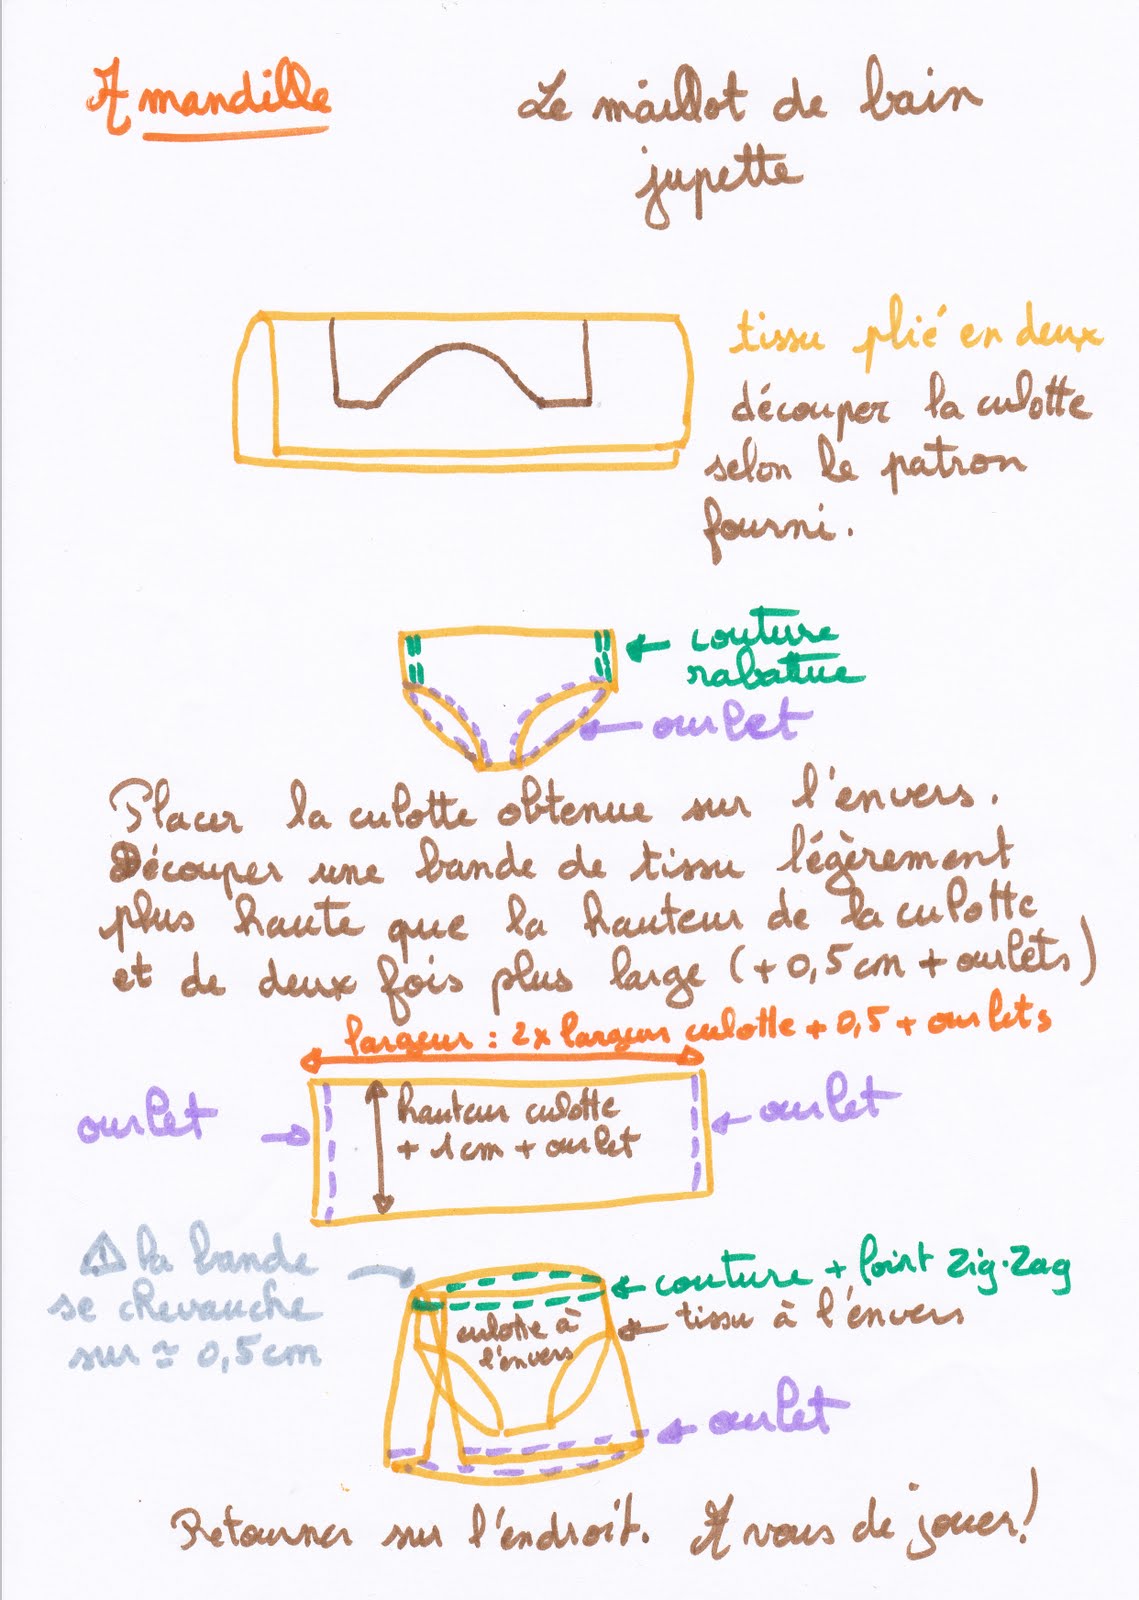 Amandille
Le maillot de bain
jupette
tissu plié en deux
découper la culotte
selon le patron
fourni.
couture
rabattue
ourlet
Placer la culotte obtenue sur l'envers.
Découper une bande de tissu légèrement
plus haute que la hauteur de la culotte
et de deux fois plus large (+0,5cm + ourlets)
largeur : 2x largeur culotte + 0,5 + ourlets
ourlet
hauteur culotte
+ 1cm + ourlet
ourlet
⚠ la bande
se chevauche
sur ≃ 0,5cm
couture + Point Zig-Zag
tissu à l'envers
culotte à
l'envers
ourlet
Retourner sur l'endroit. A vous de jouer!